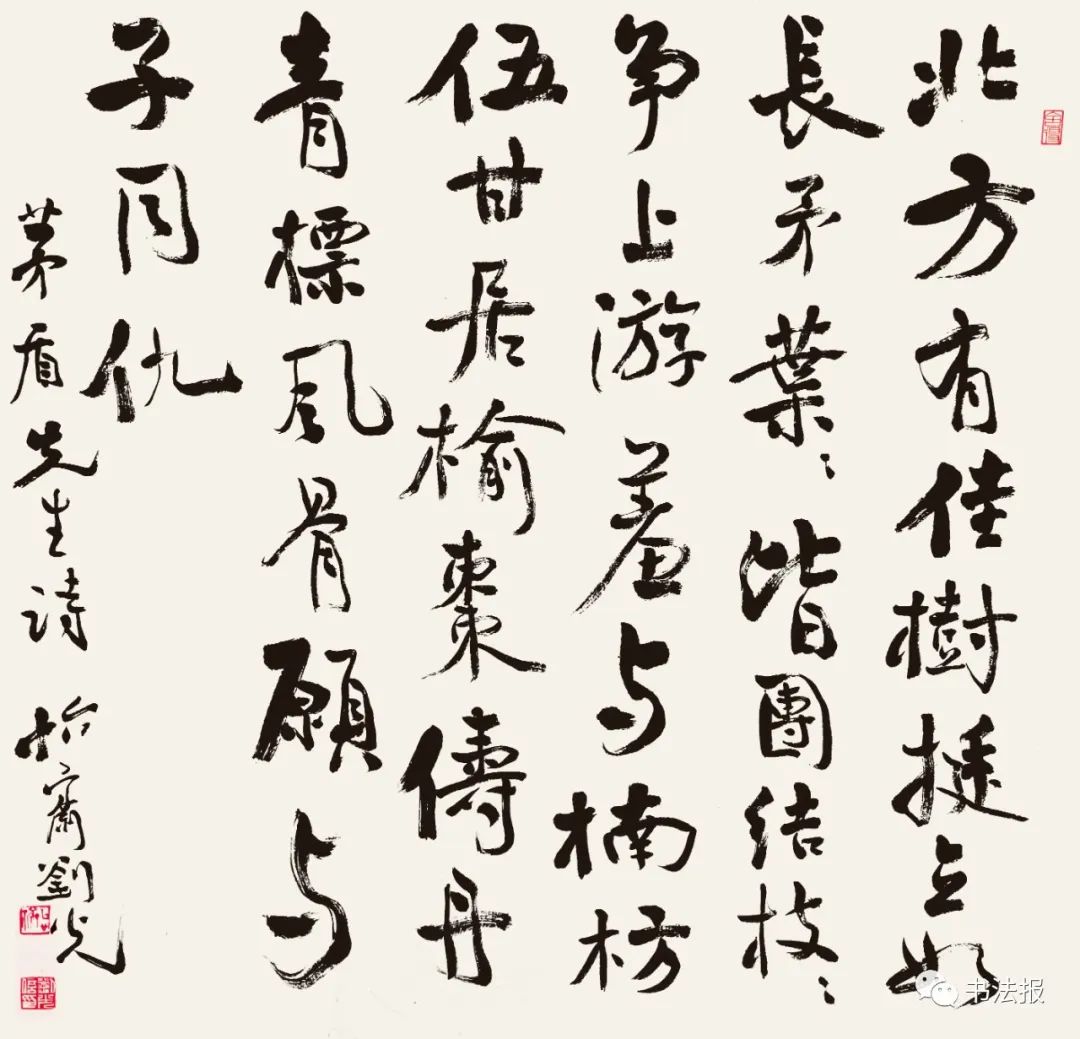 北方有佳樹挺立如
長矛葉〻皆團结枝〻
争上游羞与楠枋
伍甘居榆棗儔丹
青標风骨願与
子同仇
茅盾先生诗 劉光
书法报